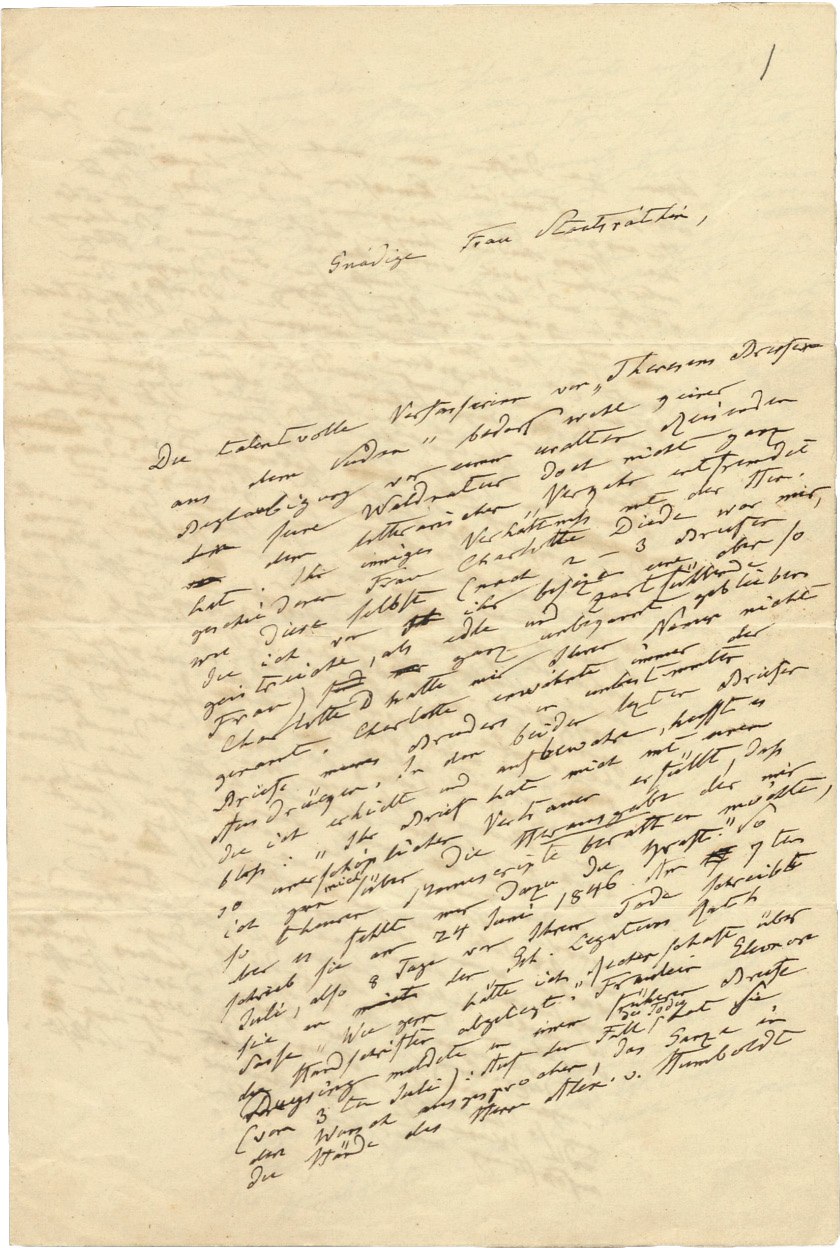 1
Gnädige Frau Staatsräthin,
Die talentvolle Verfasserinn von „Theresens Briefen
aus dem Süden" bedarf wohl keiner
Beglaubigung vor einem uralten Reisenden
den seine Waldnatur doch nicht ganz
dem litterarischen Verkehr entfremdet
hat. Ihr inniges Verhältniss mit der
geschiedenen Frau Charlotte Diede war mir,
wie diese selbst (nach 2-3 Briefen
die ich von ihr besize eine eben so
geistreiche, als edle und zartfühlende
Frau) ganz unbegannt geblieben
Charlotte D hatte mir Ihren Namen nicht
genannt. Charlotte erwähnte immer der
Briefe meines Bruders in unbestimmten
Ausdrüken. In den beiden lezten Briefen
die ich erhielt und aufbewahre, heisst es
bloss: „Ihr Brief hat mich mit einem
so unerschöpflichen Vertrauen erfüllt, dass
ich gern mich über die Herausgabe der mir
so theuren Manuscripte berathen möchte,
aber es fehlt mir dazu die Kraft." So
schrieb sie am 24 Juni 1846. Am 7 ten
Juli, also 8 Tage vor Ihrem Tode schreibt
sie an den Geh. Legations Rath
„Wie gern hätte ich Rechenschaft über
die Handschriften abgelegt." Fräulein Eleonore
meldete in einem früheren Briefe
(vom 3 ten Juli): Auf den Fall des Todes hat Sie
den Wunsch ausgesprochen, das Ganze in
die Hände des Herrn Alex. v. Humboldt